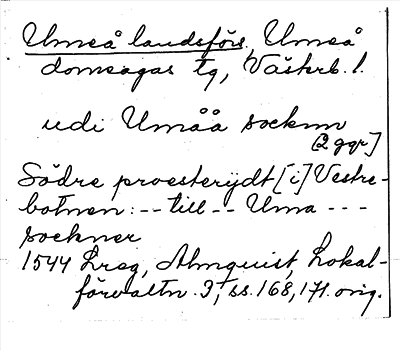 Umeå landsförs., Umeå
domsagas tg, Västerb. l.
udi Umåå socknn
[2 ggr]
Södre proesterydt [i] Vestre-
botnen: -- till -- Uma ---
sockner
1544 Lreg, Almquist, Lokal-
förvaltn. 3, ss. 168, 171. orig.